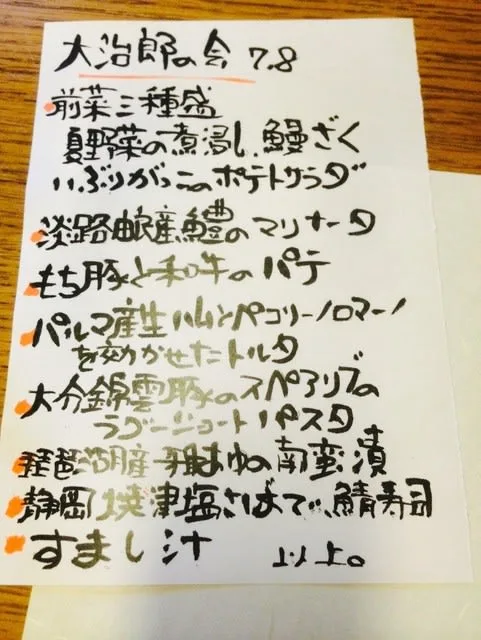 大治郎の会 7.8
前菜三種盛
夏野菜の煮浸し、鰻ざく
いぶりがっこのポテトサラダ
淡路由良産鱧のマリナータ
もち豚と和牛のパテ
パルマ産生ハムとペコリーノロマーノ
を効かせたトルタ
大分錦雲豚のスペアリブの
ラグーショートパスタ
琵琶湖産稚あゆの南蛮漬
静岡焼津塩さばで、鯖寿司
すまし汁 以上。